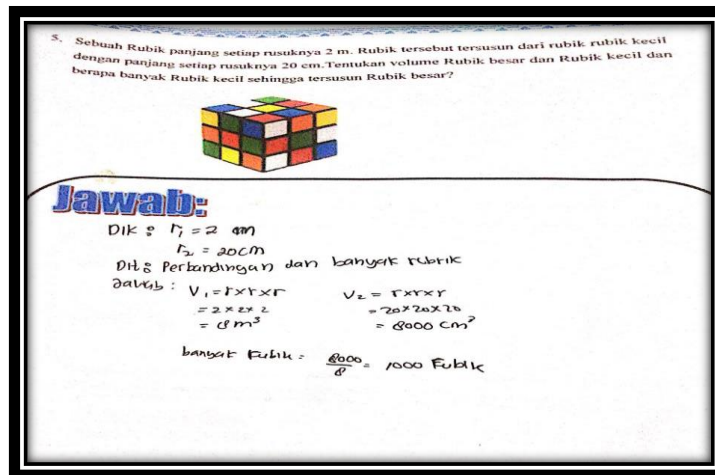 5. Sebuah Rubik panjang setiap rusuknya 2 m. Rubik tersebut tersusun dari rubik rubik kecil
dengan panjang setiap rusuknya 20 cm.Tentukan volume Rubik besar dan Rubik kecil dan
berapa banyak Rubik kecil sehingga tersusun Rubik besar?
Jawab:
DIK : r₁ = 2 m
r₂ = 20 cm
Dit : Perbandingan dan banyak rubrik
Jawab : V₁ = r×r×r V₂ = r×r×r
= 2×2×2 = 20×20×20
= 8 m³ = 8000 cm³
banyak Rubik = 8000/8 = 1000 Rubik